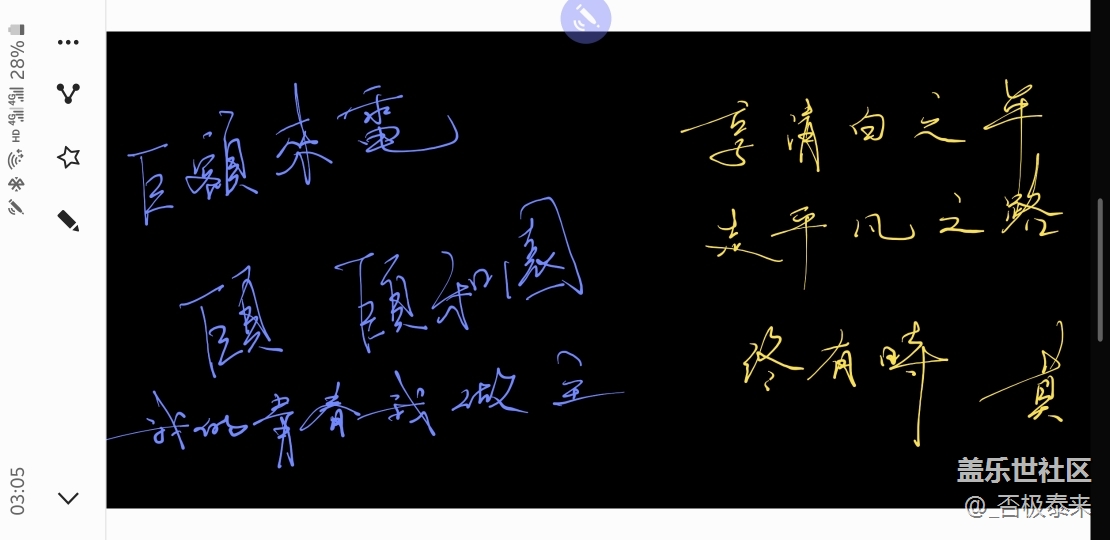 巨額来電
頤 頤和園
我的青春我做主
享清白之年
走平凡之路
终有時 真
28%
4G
4G
HD
03:05
盖乐世社区
@_否极泰来